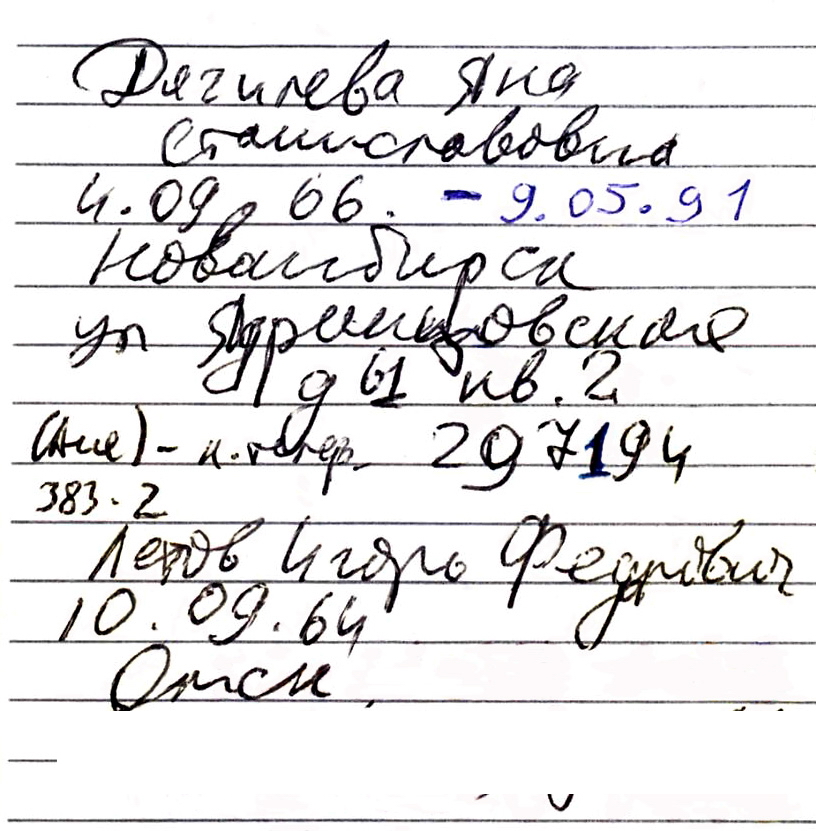 Дягилева Яна
Станиславовна
4.09.66. - 9.05.91
Новосибирск
ул Ядринцовская
д 61 кв. 2
297194
383.2
Летов Игорь Федрович
10.09.64
Омск,